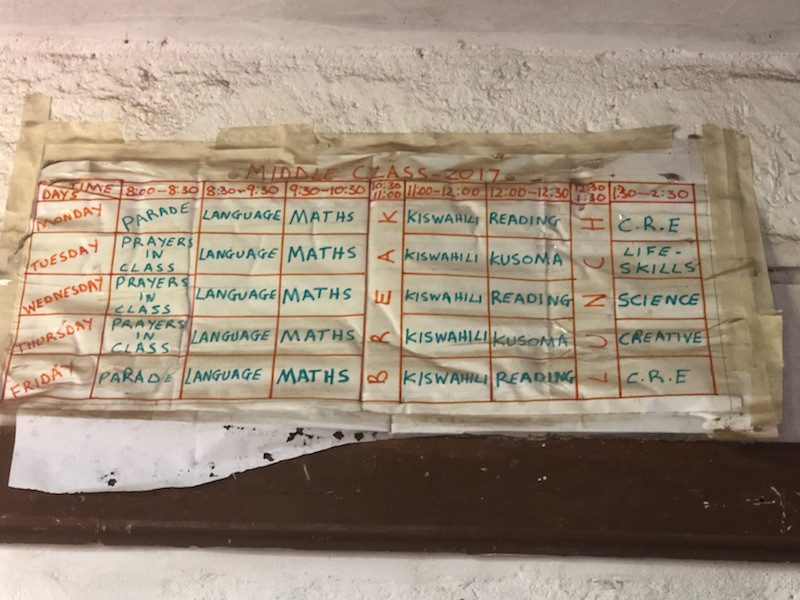 MIDDLE CLASS-2017
DAYS TIME 8:00-8:30 8:30-9:30 9:30-10:30 10:30 11:00 11:00-12:00 12:00-12:30 12:30 1:30 1:30-2:30
MONDAY PARADE LANGUAGE MATHS KISWAHILI READING C.R.E
TUESDAY PRAYERS IN CLASS LANGUAGE MATHS KISWAHILI KUSOMA LIFE-SKILLS
WEDNESDAY PRAYERS IN CLASS LANGUAGE MATHS KISWAHILI READING SCIENCE
THURSDAY PRAYERS IN CLASS LANGUAGE MATHS KISWAHILI KUSOMA CREATIVE
FRIDAY PARADE LANGUAGE MATHS KISWAHILI READING C.R.E
BREAK
LUNCH